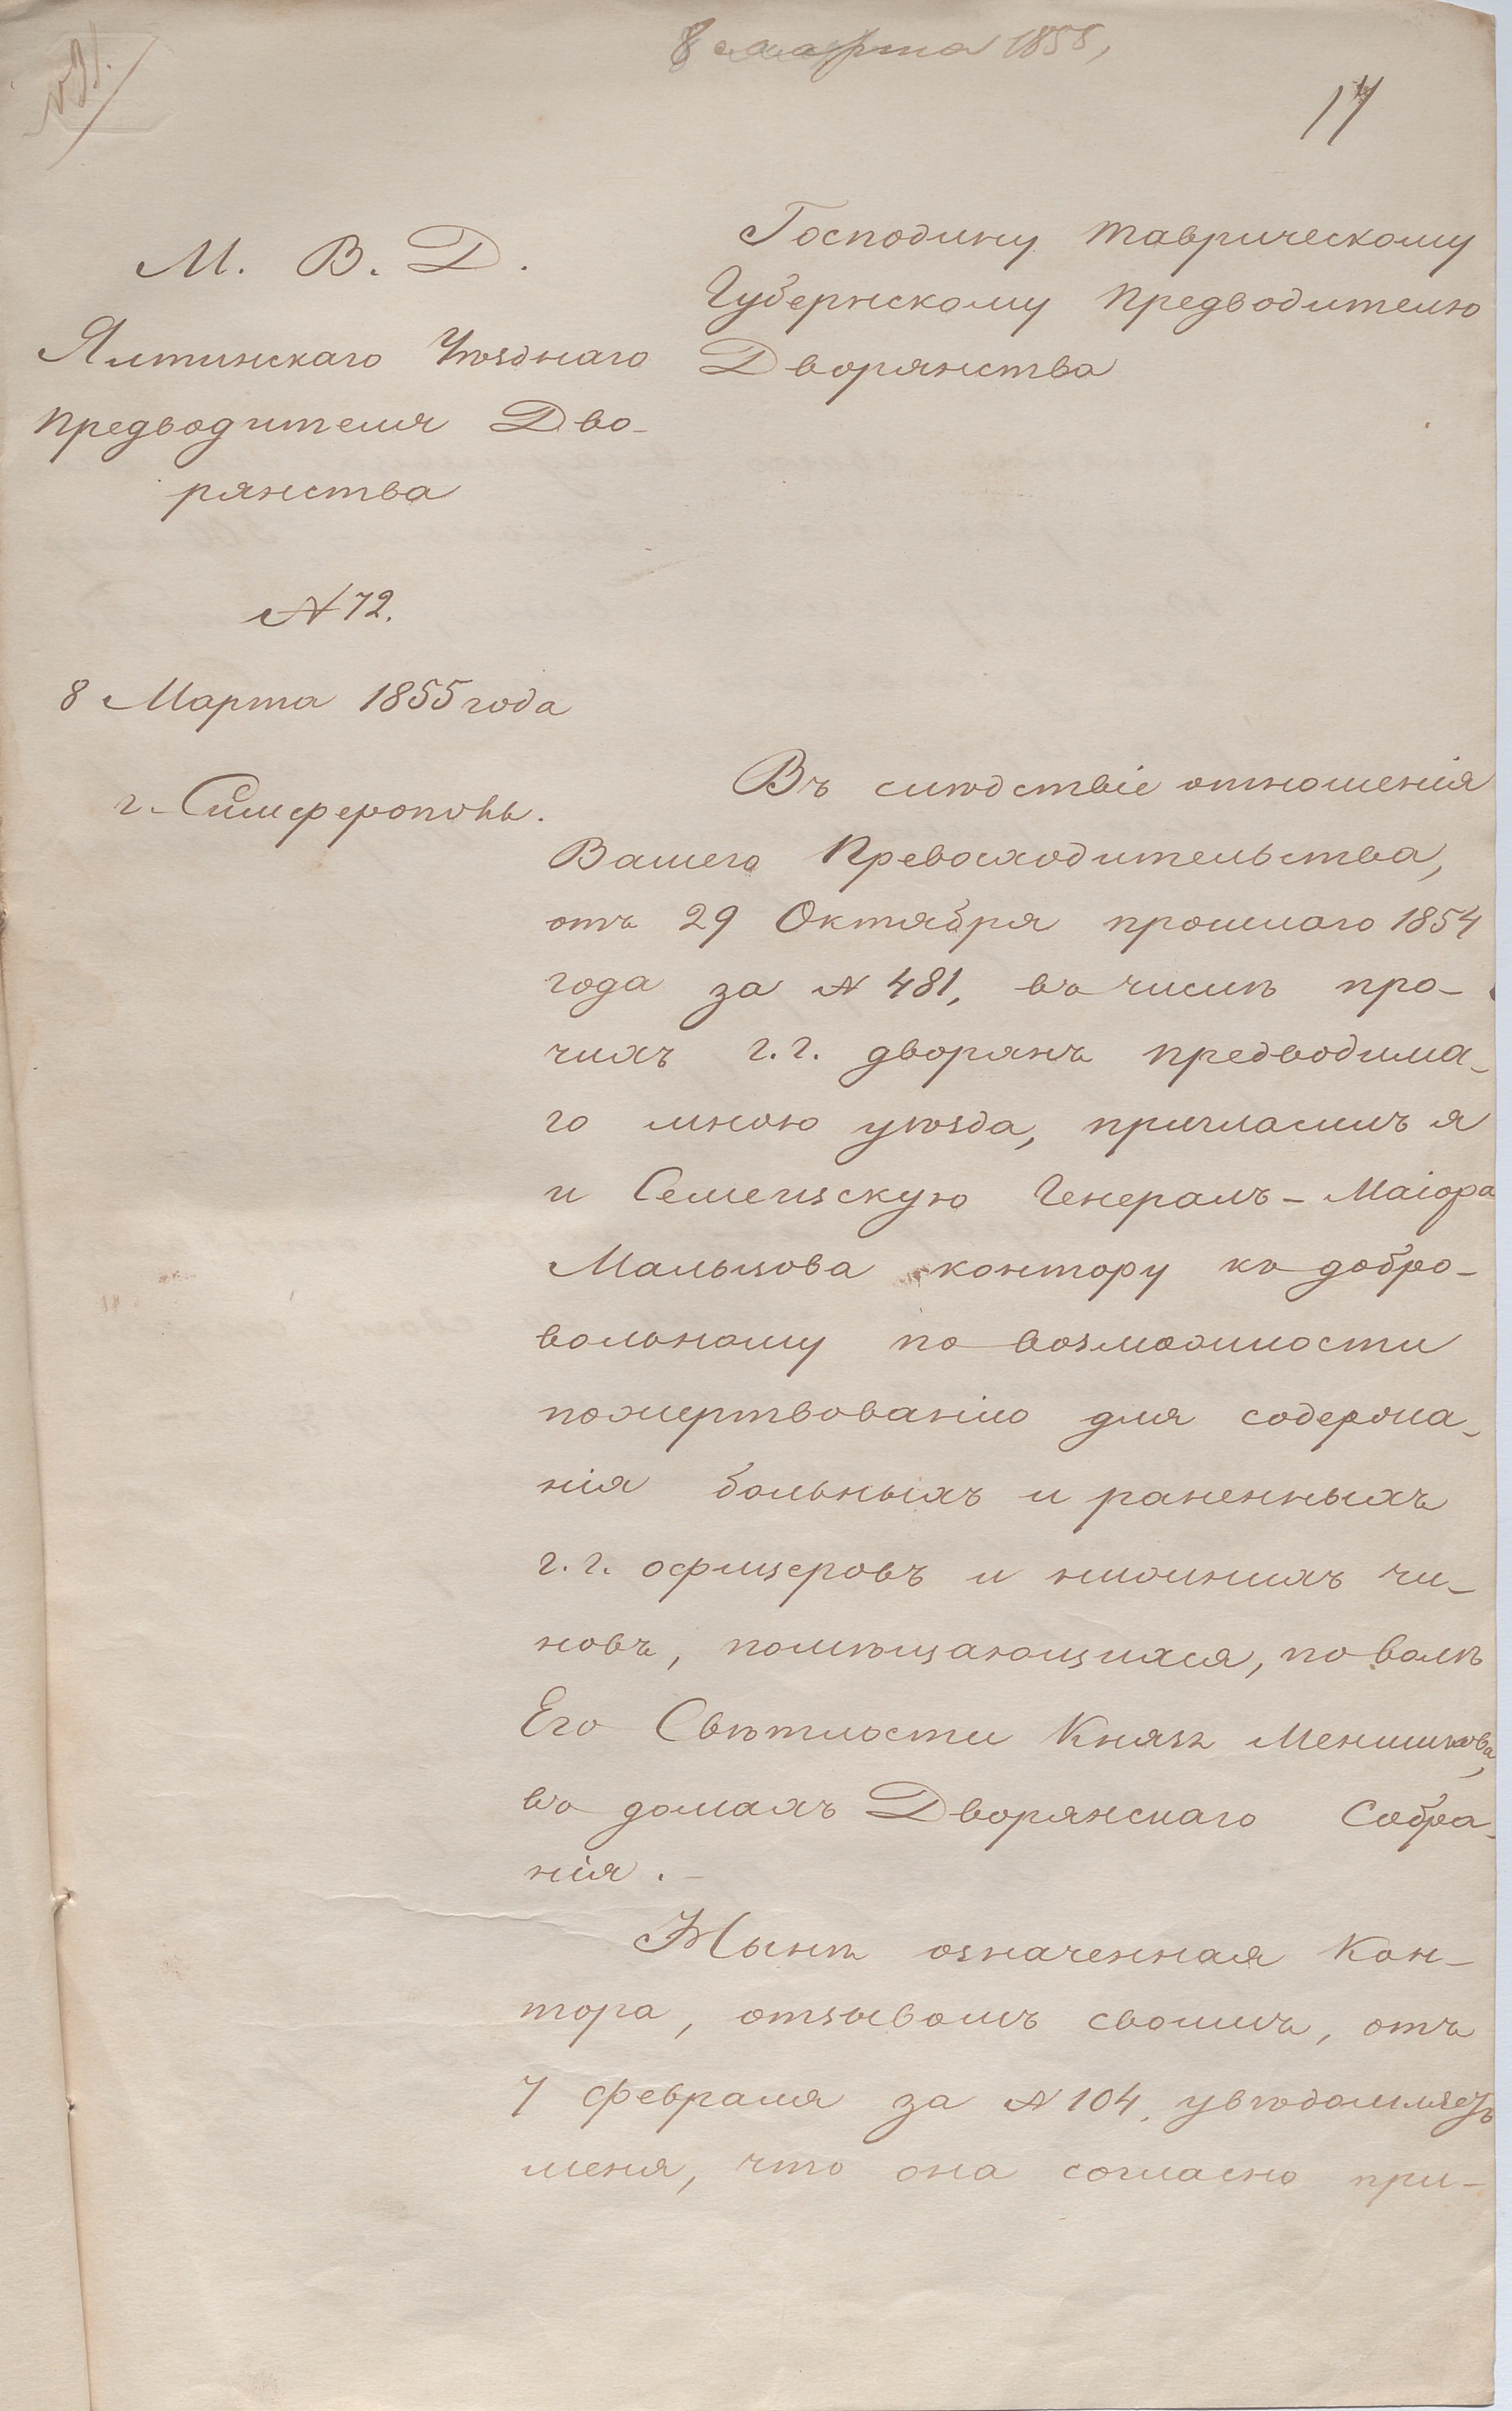 8 марта 1855,
17
М. В. Д.
Ялтинскаго Уѣзднаго
Предводителя Дво-
рянства
№ 72.
8 Марта 1855 года
г. Симферополь.
Господину Таврическому
Губернскому Предводителю
Дворянства
Въ слѣдствіе отношенія
Вашего Превосходительства,
отъ 29 Октября прошлаго 1854
года за № 481, въ числѣ про-
чихъ г.г. дворянъ предводима-
го мною уѣзда, пригласилъ я
и Семеизскую Генералъ-Маіора
Мальцова контору къ добро-
вольному по возможности
пожертвованію для содержа-
нія больныхъ и раненныхъ
г.г. офицеровъ и нижнихъ чи-
новъ, помѣщающихся, по волѣ
Его Свѣтлости Князя Меншикова,
въ домахъ Дворянскаго Собра-
нія.-
Нынѣ означенная Кон-
тора, отзывомъ своимъ, отъ
7 февраля за № 104, увѣдомляетъ
меня, что она согласно при-